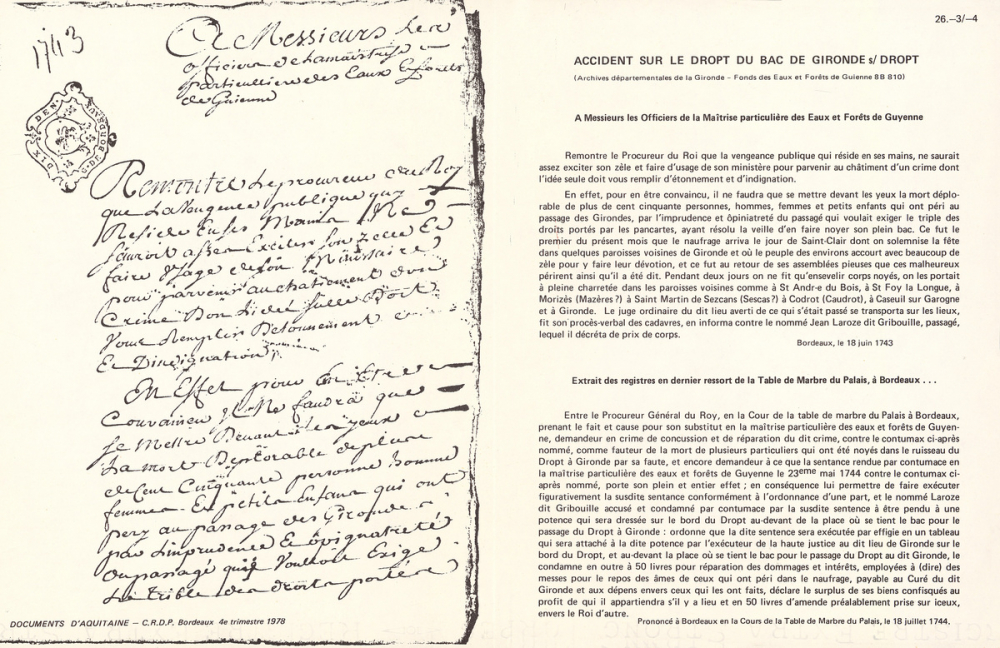 1743
A Messieurs Les
officiers de Lamaistrise
particuliere des Eaux & forets
de Guienne
DIX DEN.
G. DE BORDEAUX
Remontre Le procureur du Roy
que La Vengence publique quy
Reside En ses Mains Ne
sauroit assez Exciter son zelle Et
faire Usage de son Ministaire
pour parvenir au chatiement d'un
Crime Don L'idée seulle Doit
Vous Remplir Detonnement
Et Dindignation
En Effet pour En Etre
Convaincu Il Ne faudra que
se Mettre Devant Les yeux
La mort Deplorable de plus
de Cent Cinquante personne homme
femmes Et petits Enfans qui ont
pery au passage des Gironde
par L'imprudence & opignatreté
du passagé quy Vouloit Exige
Le trible des droits portés
DOCUMENTS D'AQUITAINE – C.R.D.P. Bordeaux 4e trimestre 1978
26.–3/–4
ACCIDENT SUR LE DROPT DU BAC DE GIRONDE s/ DROPT
(Archives départementales de la Gironde – Fonds des Eaux et Forêts de Guienne 8B 810)
A Messieurs les Officiers de la Maîtrise particulière des Eaux et Forêts de Guyenne
Remontre le Procureur du Roi que la vengeance publique qui réside en ses mains, ne saurait
assez exciter son zèle et faire d'usage de son ministère pour parvenir au châtiment d'un crime dont
l'idée seule doit vous remplir d'étonnement et d'indignation.
En effet, pour en être convaincu, il ne faudra que se mettre devant les yeux la mort déplo-
rable de plus de cent cinquante personnes, hommes, femmes et petits enfants qui ont péri au
passage des Girondes, par l'imprudence et ôpiniatreté du passagé qui voulait exiger le triple des
droits portés par les pancartes, ayant résolu la veille d'en faire noyer son plein bac. Ce fut le
premier du présent mois que le naufrage arriva le jour de Saint-Clair dont on solemnise la fête
dans quelques paroisses voisines de Gironde et où le peuple des environs accourt avec beaucoup de
zèle pour y faire leur dévotion, et ce fut au retour de ses assemblées pieuses que ces malheureux
périrent ainsi qu'il a été dit. Pendant deux jours on ne fit qu'ensevelir corps noyés, on les portait
à pleine charretée dans les paroisses voisines comme à St Andr-e du Bois, à St Foy la Longue, à
Morizès (Mazères ?) à Saint Martin de Sezcans (Sescas ?) à Codrot (Caudrot), à Caseuil sur Garogne
et à Gironde. Le juge ordinaire du dit lieu averti de ce qui s'était passé se transporta sur les lieux,
fit son procès-verbal des cadavres, en informa contre le nommé Jean Laroze dit Gribouille, passagé,
lequel il décréta de prix de corps.
Bordeaux, le 18 juin 1743
Extrait des registres en dernier ressort de la Table de Marbre du Palais, à Bordeaux . . .
Entre le Procureur Général du Roy, en la Cour de la table de marbre du Palais à Bordeaux,
prenant le fait et cause pour son substitut en la maîtrise particulière des eaux et forêts de Guyen-
ne, demandeur en crime de concussion et de réparation du dit crime, contre le contumax ci-après
nommé, comme fauteur de la mort de plusieurs particuliers qui ont été noyés dans le ruisseau du
Dropt à Gironde par sa faute, et encore demandeur à ce que la sentence rendue par contumace en
la maîtrise particulière des eaux et forêts de Guyenne le 23eme mai 1744 contre le contumax ci-
après nommé, porte son plein et entier effet ; en conséquence lui permettre de faire exécuter
figurativement la susdite sentence conformément à l'ordonnance d'une part, et le nommé Laroze
dit Gribouille accusé et condamné par contumace par la susdite sentence à être pendu à une
potence qui sera dressée sur le bord du Dropt au-devant de la place où se tient le bac pour le
passage du Dropt à Gironde : ordonne que la dite sentence sera exécutée par effigie en un tableau
qui sera attaché à la dite potence par l'exécuteur de la haute justice au dit lieu de Gironde sur le
bord du Dropt, et au-devant la place où se tient le bac pour le passage du Dropt au dit Gironde, le
condamne en outre à 50 livres pour réparation des dommages et intérêts, employées à (dire) des
messes pour le repos des âmes de ceux qui ont péri dans le naufrage, payable au Curé du dit
Gironde et aux dépens envers ceux qui les ont faits, déclare le surplus de ses biens confisqués au
profit de qui il appartiendra s'il y a lieu et en 50 livres d'amende préalablement prise sur iceux,
envers le Roi d'autre.
Prononcé à Bordeaux en la Cours de la Table de Marbre du Palais, le 18 juillet 1744.